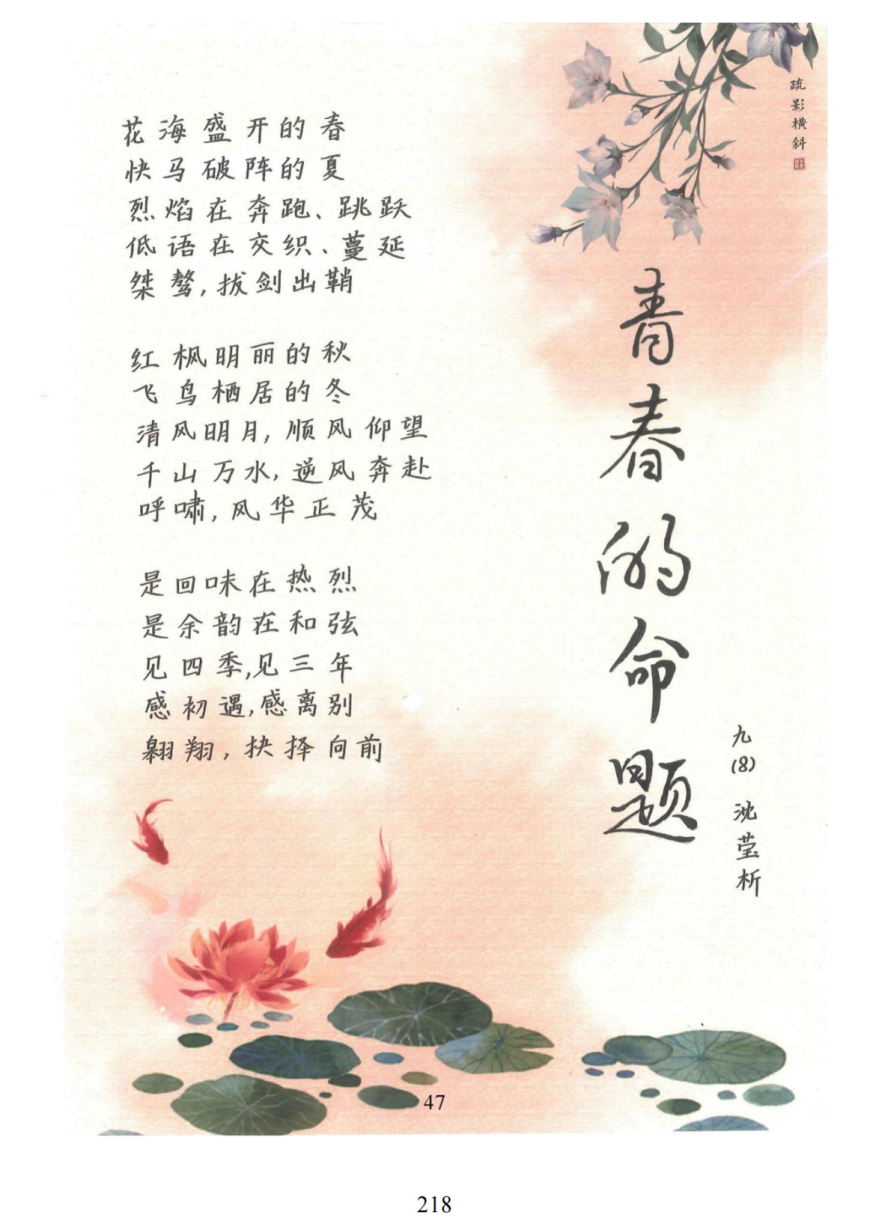 疏影横斜
青春的命题
九(8) 沈莹析
花海盛开的春
快马破阵的夏
烈焰在奔跑、跳跃
低语在交织、蔓延
桀骜,拔剑出鞘
红枫明丽的秋
飞鸟栖居的冬
清风明月,顺风仰望
千山万水,逆风奔赴
呼啸,风华正茂
是回味在热烈
是余韵在和弦
见四季,见三年
感初遇,感离别
翱翔,抉择向前
47
218